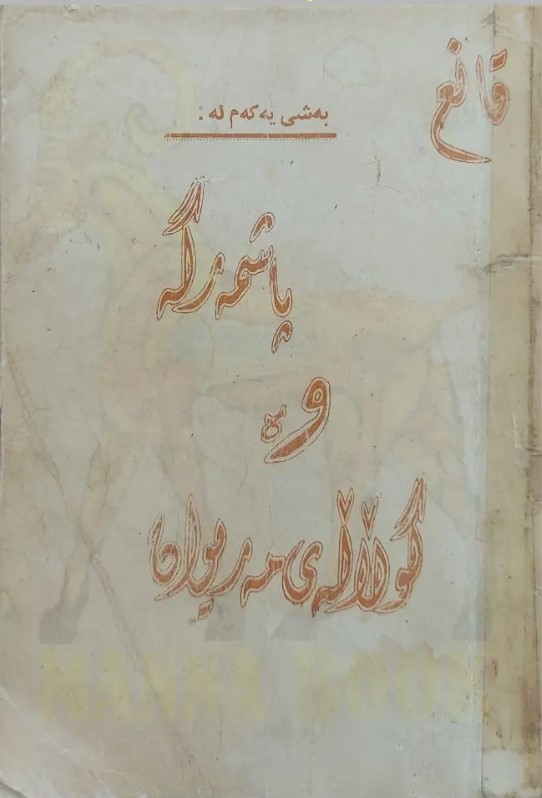 قانع
بەشی یەکەم لە :
پاشمەرگە
و
گوڵاڵەی مەریوان
MANNA BOOK